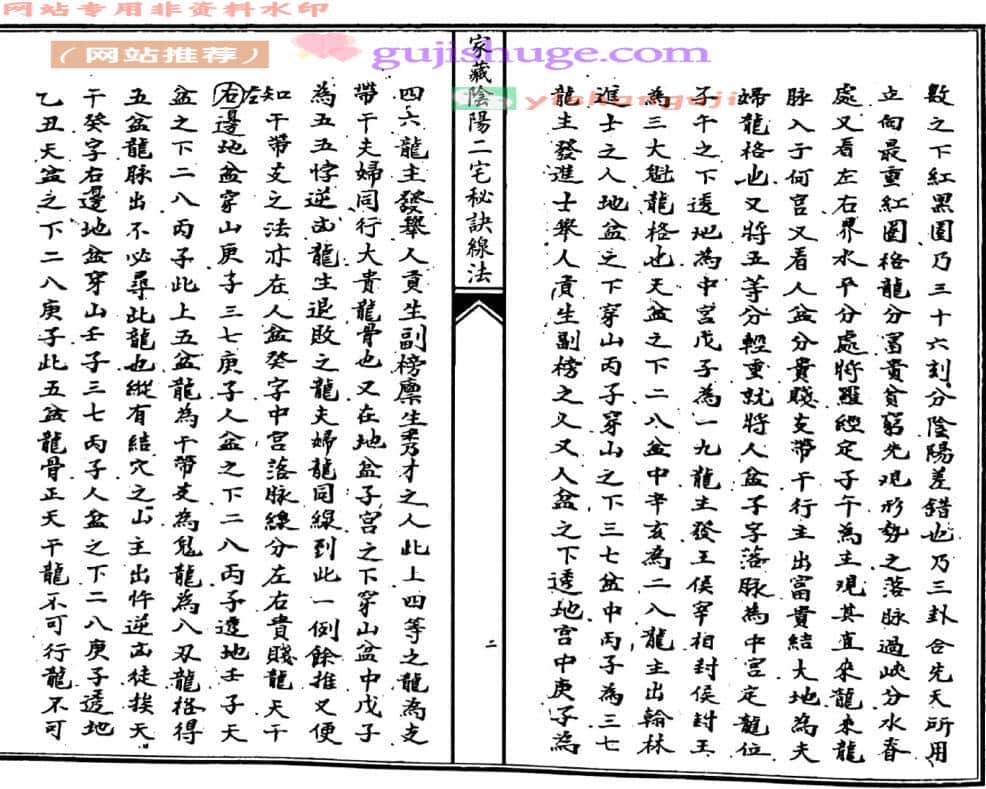 网站专用非资料水印
（网站推荐）
gujishuge.com
数之下紅黑圈乃三十六刻分陰陽差錯也乃三卦合先天所用
立向最重紅圈格龍分富貴貧窮先現形勢之落脉過峽分水脊
處又看左右界水平分處將羅經定子午為主現其直來龍來龍
脉入于何宮又看人盆分貴賤支帶干行主出富貴結大地為夫
婦龍格也又將五等分輕重就將人盆子字落脉為中宮定龍位
子午之下透地為中宮戊子為一九龍主發王侯宰相封侯封王
為三大魁龍格也天盆之下二八盆中辛亥為二八龍主出翰林
進士之人地盆之下穿山丙子穿山之下三七盆中丙子為三七
龍主發進士舉人貢生副榜之义又人盆之下透地宮中庚子為
家藏陰陽二宅秘訣線法
二
四六龍主發舉人貢生副榜廪生秀才之人此上四等之龍為支
帶干夫婦同行大貴龍骨也又在地盆子宮之下穿山盆中戊子
為五五悖逆㐫龍生退敗之龍夫婦龍同線到此一例餘推又便
知干帶支之法亦在人盆癸字中宮落脉線分左右貴賤龍天干
左
右邊地盆穿山庚子三七庚子人盆之下二八丙子透地壬子天
盆之下二八丙子此上五盆龍為干帶支為鬼龍為八刃龍格得
五盆龍脉出不必尋此龍也縱有結穴之山主出忤逆㐫徒挨天
干癸字右邊地盆穿山壬子三七丙子人盆之下二八庚子透地
乙丑天盆之下二八庚子此五盆龍骨正天干龍不可行龍不可